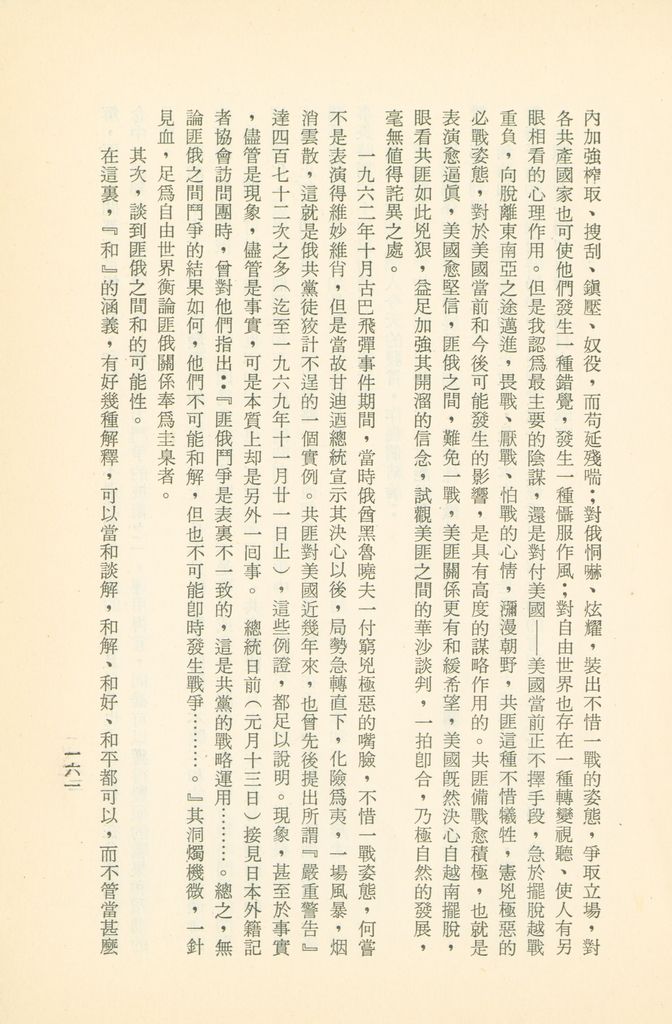 內加強榨取、搜刮、鎮壓、奴役，而苟延殘喘；對俄恫嚇、炫耀，裝出不惜一戰的姿態，爭取立場，對
各共產國家也可使他們發生一種錯覺，發生一種懾服作風；對自由世界也存在一種轉變視聽、使人有另
眼相看的心理作用。但是我認爲最主要的陰謀，還是對付美國——美國當前正不擇手段，急於擺脫越戰
重負，向脫離東南亞之途邁進，畏戰、厭戰、怕戰的心情，瀰漫朝野，共匪這種不惜犧牲，窮兇極惡的
必戰姿態，對於美國當前和今後可能發生的影響，是具有高度的謀略作用的。共匪備戰愈積極，也就是
表演愈逼眞，美國愈堅信，匪俄之間，難免一戰，美匪關係更有和緩希望，美國旣然決心自越南擺脫，
眼看共匪如此兇狠，益足加強其開溜的信念，試觀美匪之間的華沙談判，一拍卽合，乃極自然的發展，
毫無値得詫異之處。
一九六二年十月古巴飛彈事件期間，當時俄酋黑魯曉夫一付窮兇極惡的嘴臉，不惜一戰姿態，何嘗
不是表演得維妙維肖，但是當故甘迪迺總統宣示其決心以後，局勢急轉直下，化險爲夷，一場風暴，烟
消雲散，這就是俄共黨徒狡計不逞的一個實例。共匪對美國近幾年來，也曾先後提出所謂『嚴重警告』
達四百七十二次之多（迄至一九六九年十一月廿一日止），這些例證，都足以說明。現象，甚至於事實
，儘管是現象，儘管是事實，可是本質上却是另外一回事。　總統日前（元月十三日）接見日本外籍記
者協會訪問團時，曾對他們指出：『匪俄鬥爭是表裏不一致的，這是共黨的戰略運用………。總之，無
論匪俄之間鬥爭的結果如何，他們不可能和解，但也不可能卽時發生戰爭………。』其洞燭機微，一針
見血，足爲自由世界衡論匪俄關係奉爲圭臬者。
其次，談到匪俄之間和的可能性。
在這裏，『和』的涵義，有好幾種解釋，可以當和談解，和解、和好、和平都可以，而不管當甚麼
一六二